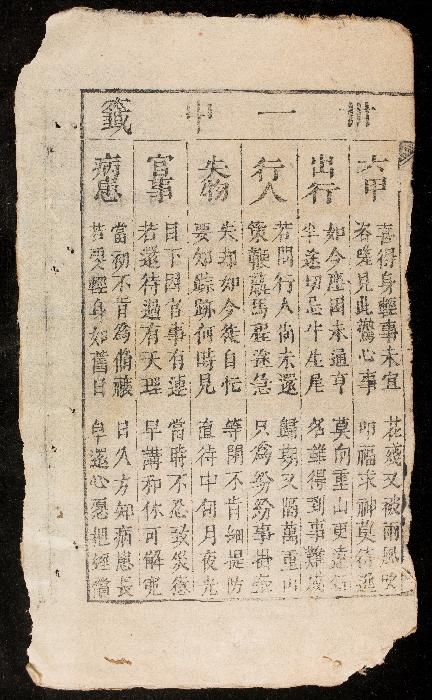 卅一中籤
六甲
喜得身輕事未宜 花殘又被雨風吹
見此驚心事 叩福求神莫待遲
出行
如今塵困未通亨 莫向重山更遠行
半途切忌牛生尾 名雖得到事難成
行人
若問行人尚未還 歸期又隔萬重山
策鞭羸馬程途急 只為紛紛事掛
失物
失却如今徒自忙 等閒不肯細提防
要知踪跡何時見 直待中旬月夜光
官事
目下因官事有連 當時不忍致災愆
若還待過有天理 早講和休可解冤
病患
當初不肯為脩禳 日久方知病患長
若要輕身如舊日 早還心愿把經償